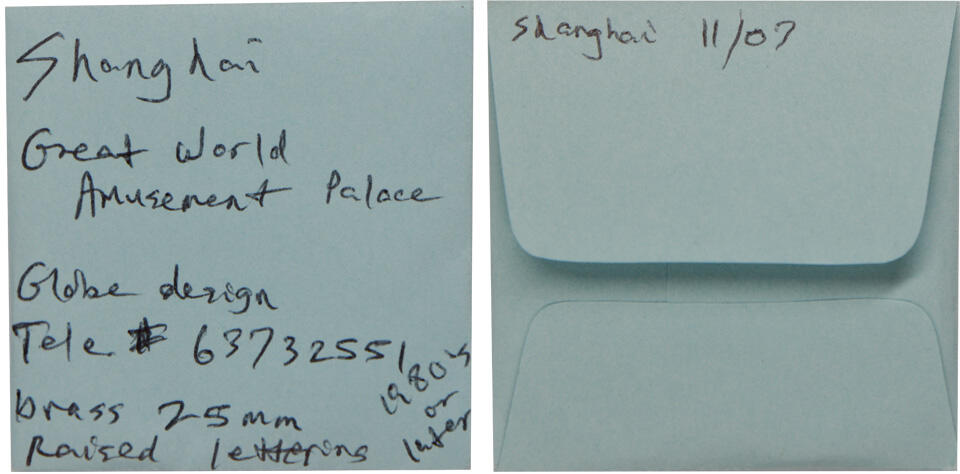 Shanghai
Great World
Amusement Palace
Globe design
Tele # 63732551
1980's
or
later
brass 25mm
Raised lettering
Shanghai 11/07